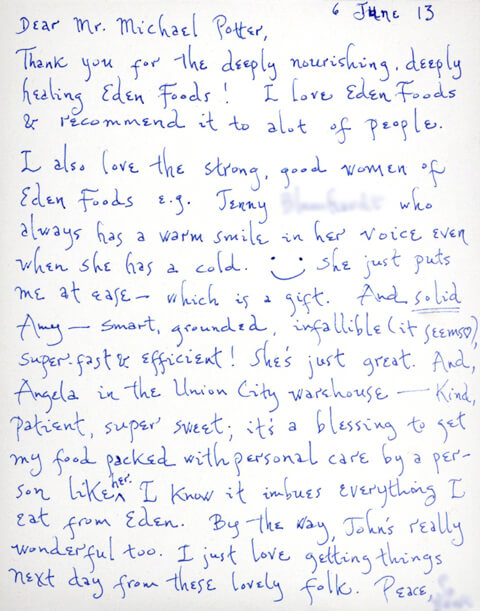 6 June 13
Dear Mr. Michael Potter,
Thank you for the deeply nourishing, deeply
healing Eden Foods! I love Eden Foods
& recommend it to alot of people.
I also love the strong, good women of
Eden Foods e.g. Jenny who
always has a warm smile in her voice even
when she has a cold. She just puts
me at ease — which is a gift. And solid
Amy — smart, grounded, infallible (it seems♡),
super-fast & efficient! She's just great. And,
Angela in the Union City warehouse — Kind,
patient, super sweet; it's a blessing to get
my food packed with personal care by a per-
son like her. I know it imbues everything I
eat from Eden. By the way, John's really
wonderful too. I just love getting things
next day from these lovely folk. Peace,